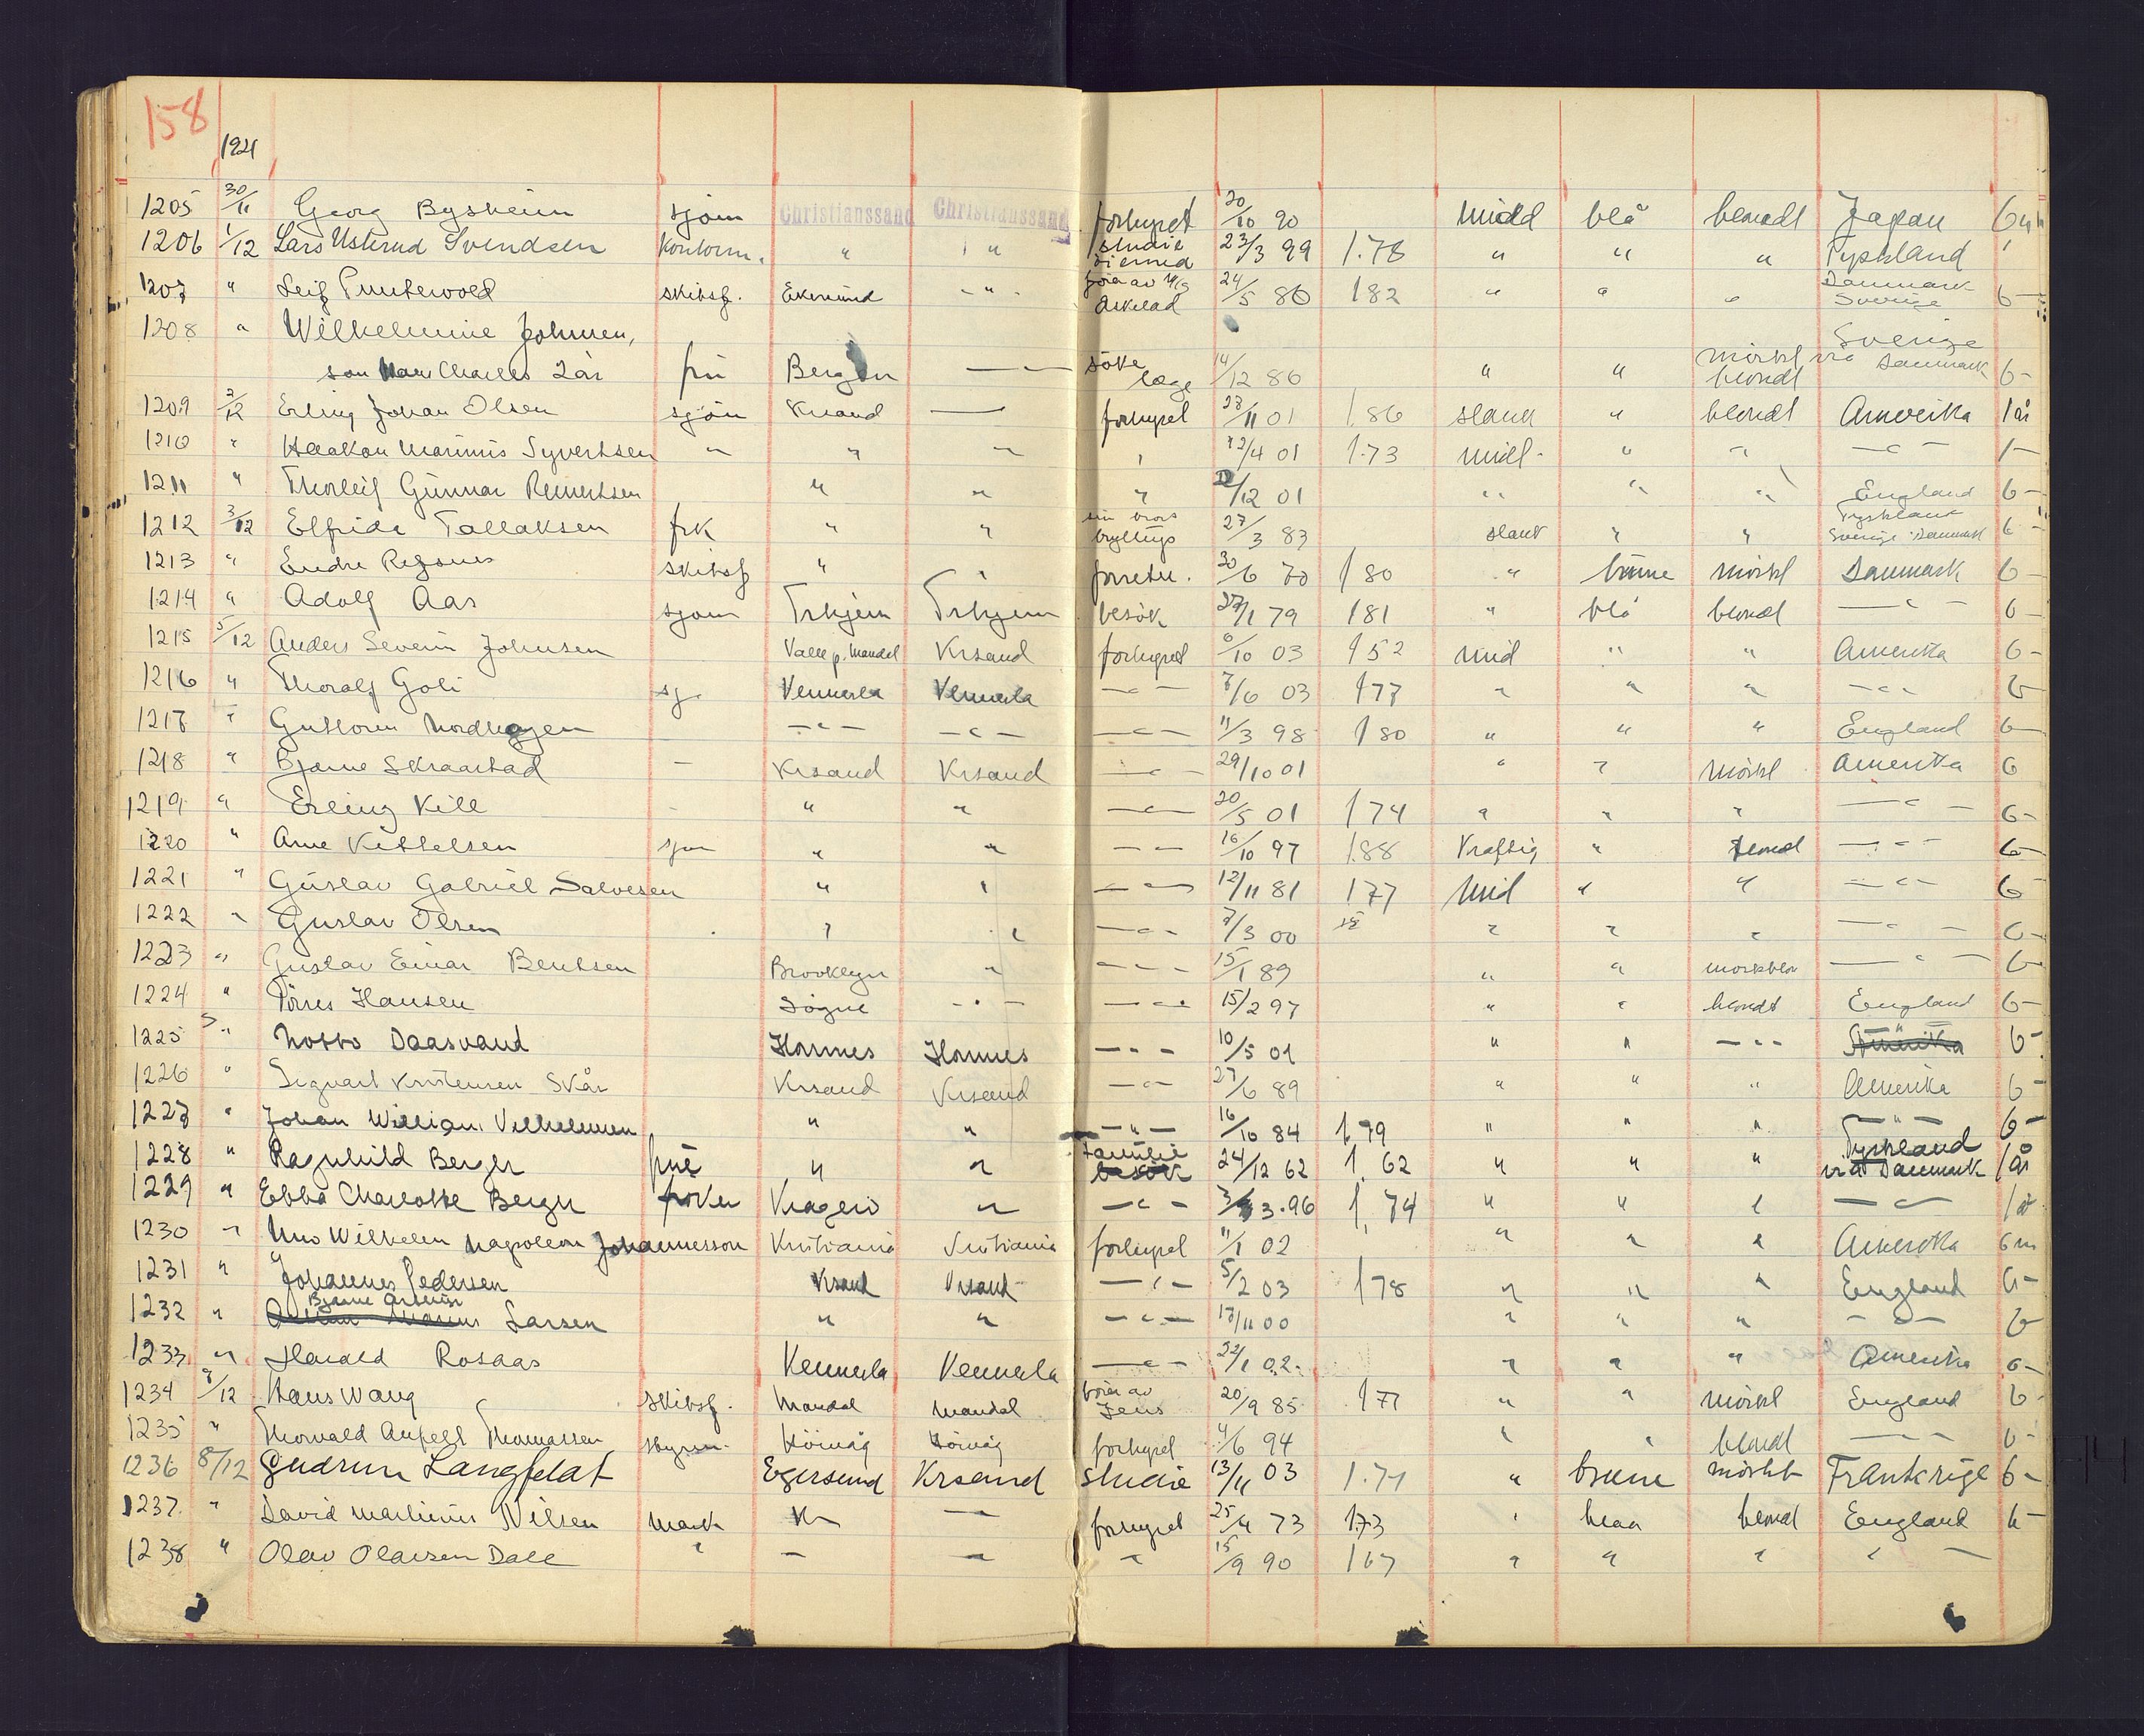 158
1921
1205 30/11 Georg Bysheim sjøm Christianssand Christianssand forhyret 20/10 90 midd blå blondt Japan 6 m
1206 1/12 Lars Usterud Svendsen kontorm. " " studie 23/3 99 1.78 " " " Tyskland
1207 " Leif skibsf. Ekersund - " - fører av M/S Askelad 24/5 86 182 " " " Danmark Sverige 6 -
1208 " Wilhelmine Johnsen,
søn Charles 2 år frü Bergen — søke læge 14/12 86 " " mörkt blondt Sverige via Danmark 6 -
1209 2/12 Erling Johan Olsen sjöm Krsand — forhyret 28/11 01 1.86 slank " blondt Amerika 1 år
1210 " Haakon Marinius Syvertsen " " " " 12/4 01 1.73 midl - " " — " — 1 -
1211 " Thorleif Gunnar Reinertsen " " " /12 01 " " " England 6 -
1212 3/12 Elfrida Tallaksen frk " " sin brors bryllup 27/3 83 slank " " Tyskland Sverige Danmark 6 -
1213 " Endre skibsf " " forretn. 30/6 70 1 80 " brune mörkt Danmark 6 -
1214 " Adolf Aas sjøm Trhjem Trhjem besök 27/1 79 181 " blå blondt — " — 6 -
1215 5/12 Anders Severin Johnsen Valle p. Mandal Krsand forhyret 6/10 03 1 52 mid " " Amerika 6 -
1216 " Thoralf Goli sj. Vennesla Vennesla — " — 7/6 03 177 " " " — " — 6 -
1217 " Guttorm Nordhagen — " — — " — — " — 11/3 98 1 80 " " " England 6 -
1218 " Bjarne Skraastad — Krsand Krsand — " — 29/10 01 " " mörkt Amerika 6
1219 " Erling Kill - " " — " — 20/5 01 1 74 " " " — " — 6 -
1220 " Arne Kittelsen sjm " " — " — 16/10 97 1.88 Kraftig " blond — " — 6 -
1221 " Gustav Gabriel Salvesen " " — " — 12/11 81 177 Mid " " — " — 6
1222 " Gustav Olsen " " — " — 7/3 00 " " " — " — 6 -
1223 " Gustav Einar Bentsen Brooklyn " — " — 15/1 89 " " mörkblon — " — 6 -
1224 " Törres Hansen Søgne - " - — " — 15/2 97 " " blondt England 6 -
1225 " Notto Daasvand Hornnes Hornnes — " — 10/5 01 " " — " — Amerika 6 -
1226 " Sigvart Kristensen Skår Krsand Krsand — " — 27/6 89 " " " Amerika 6 -
1227 " Johan William Vilhelmsen " " — " — 16/10 84 1,79 " " " — " — 6 -
1228 " Ragnhild Berger früe " " Familie besök 24/12 62 1, 62 " " " Tyskland via Danmark 1 år
1229 " Ebba Charlotte Berger fröken Kragerö " — " — 3.96 1, 74 " " " — " — 1 år
1230 " Uno Wilhelm Napoleon Johannesson Kristiania Kristiania forhyret 11/1 02 " " " Amerika 6 m
1231 " Johannes Pedersen Krsand Krsand — " — 5/2 03 1 78 " " " England 6 -
1232 " Bjarne Larsen " " — " — 18/11 00 " " " — " — 6
1233 " Harald Rosaas Vennesla Vennesla — " — 22/1 02. " " " Amerika 6 -
1234 8/12 Hans Wang skibsf. Mandal Mandal fører av Jens 20/9 85 177 " " mörkt England 6 -
1235 " Thorvald Thomassen styrm. Hövåg Hövåg forhyret 4/6 94 " " blondt — " — 6 -
1236 8/12 Gudrun Langfeldt Egersund Krsand studie 13/11 03 1.71 " brune mörkt Frankrige 6 -
1237 " David Martinius Nilsen Mask K — — forhyret 25/4 73 1.73 " blaa blond England 6 -
1238 " Olav Olavsen Dale " — — " 15/9 90 1 67 " " " " —